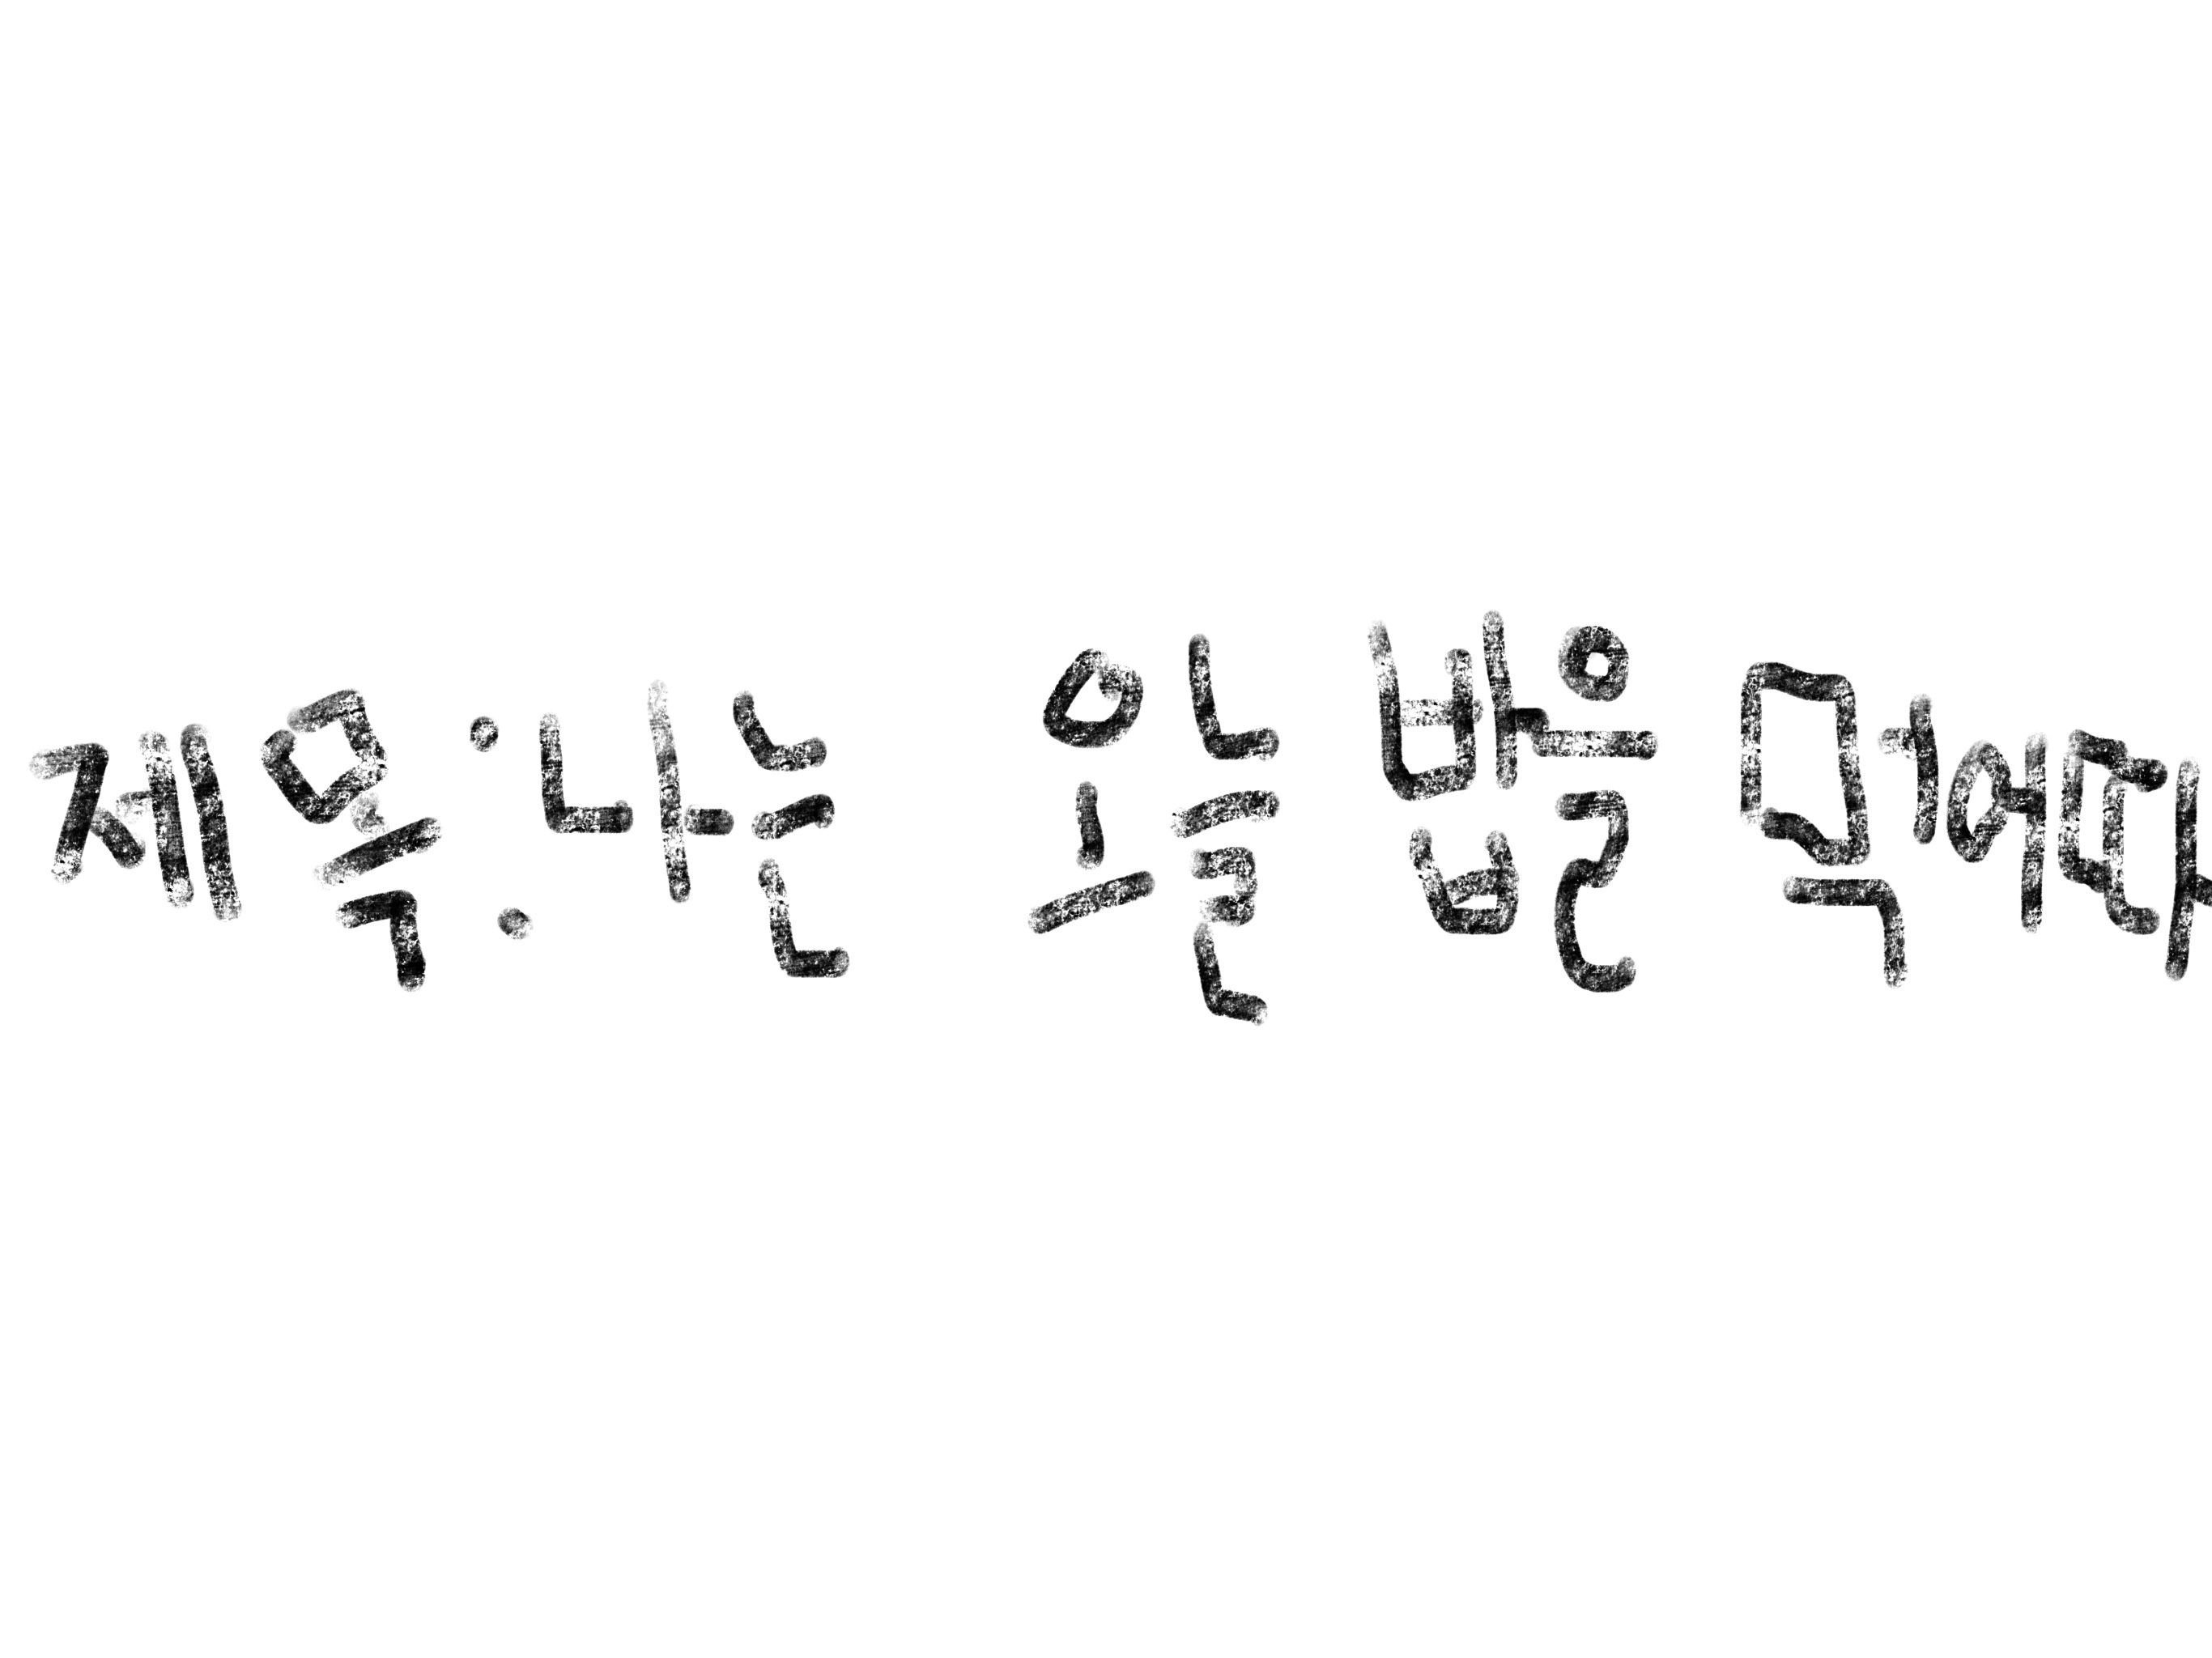 제목:나는 오늘 밥을 먹어따